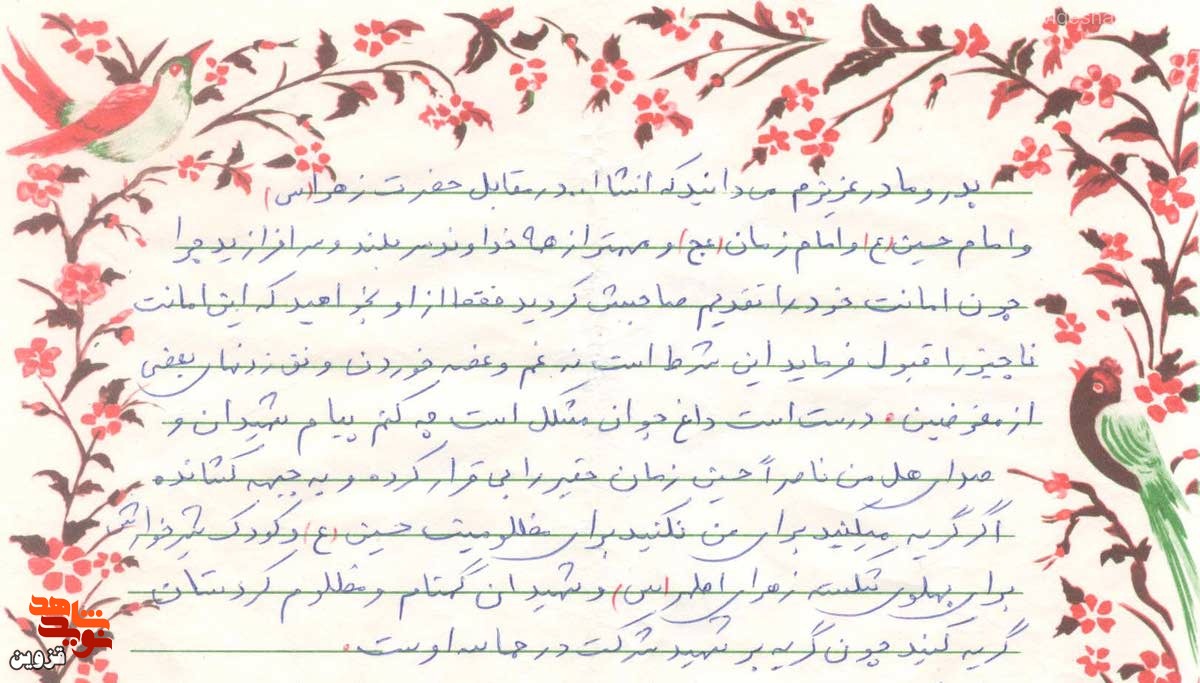 پدر و مادر عزیزم می دانید که انشاا... در مقابل حضرت زهرا (س)
و امام حسین (ع) و امام زمان (عج) و مهمتر از همه خداوند سربلند و سرافرازید چرا
چون امانت خود را تقدیم صاحبش کردید فقط از او بخواهید که این امانت
ناچیز را قبول فرماید این شرط است نه غم و غصه خوردن و نق زدنهای بعضی
از مغرضین. درست است داغ جوان مشکل است چه کنم پیام شهیدان و
صدای هل من ناصراً حسین زمان حقیر را بی قرار کرده و به جبهه کشانده
اگر گریه میکنید برای من نکنید برای مظلومیت حسین (ع) و کودک شیرخوارش
برای پهلوی شکسته زهرای اطهر (س) و شهیدان گمنام و مظلوم کردستان
گریه کنید چون گریه بر شهید شرکت در حماسه اوست.
نوید شاهد
قزوین